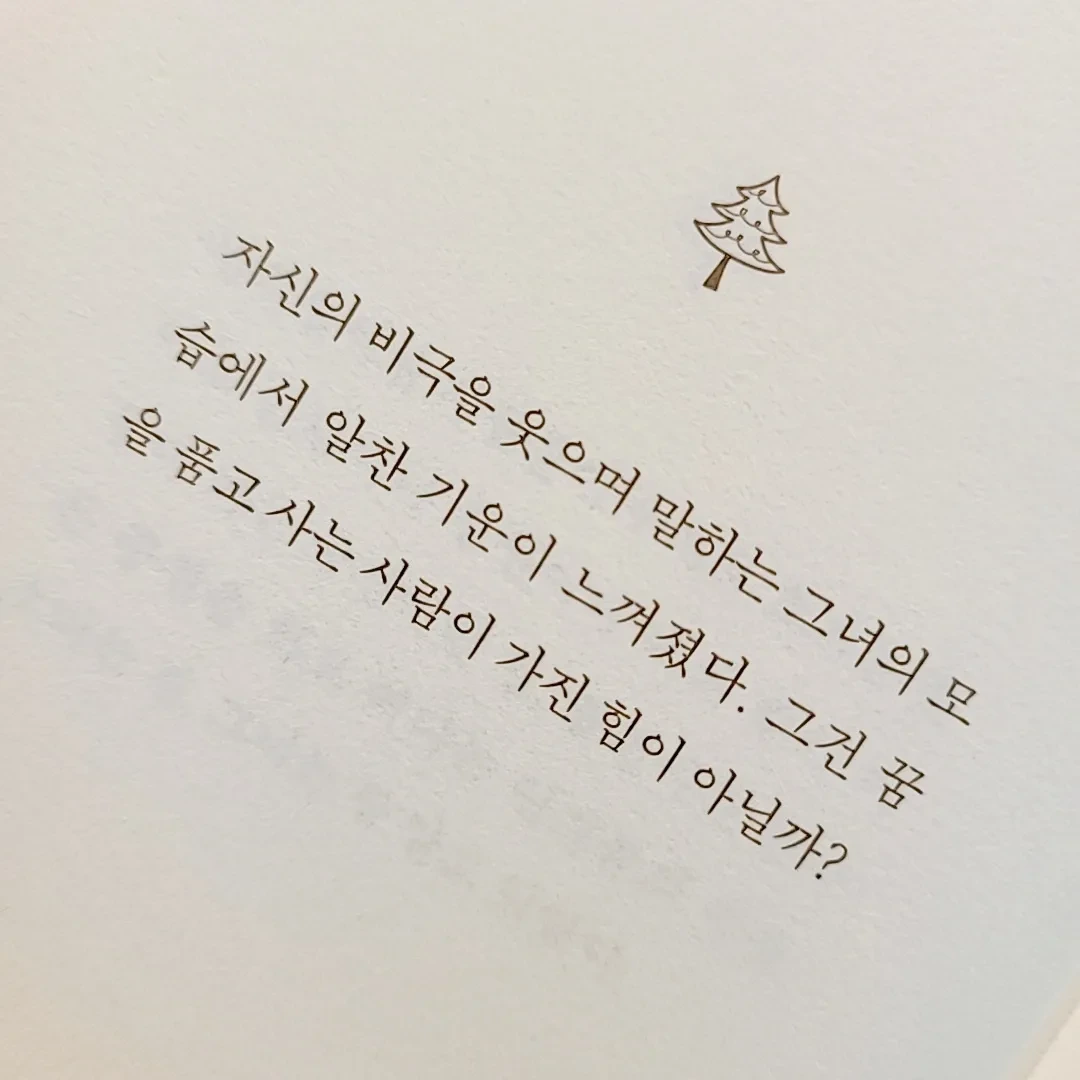 자신의 비극을 웃으며 말하는 그녀의 모
습에서 알찬 기운이 느껴졌다. 그건 꿈
을 품고 사는 사람이 가진 힘이 아닐까?